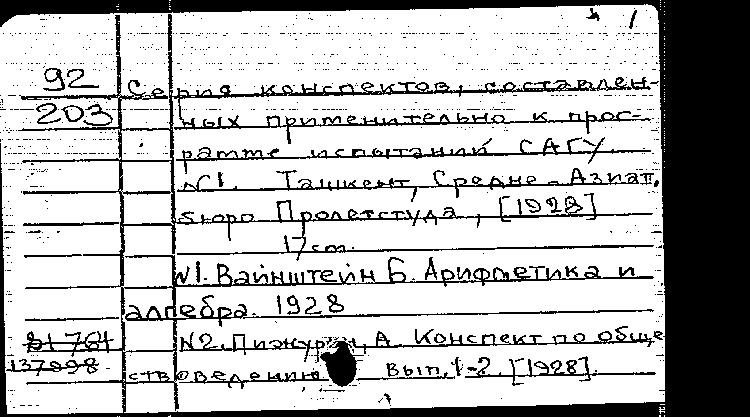 1
92 Серия конспектов, составлен-
203 ных применительно к прог-
рамме испытаний САГУ
№1. Ташкент, Средне-Азиат.
бюро Пролетстуда, [1928]
17 cm.
№1. Вайнштейн Б. Арифметика и
алгебра. 1928
№2. А. Конспект по обще
137998 ствоведению Вып. 1-2. [1928].